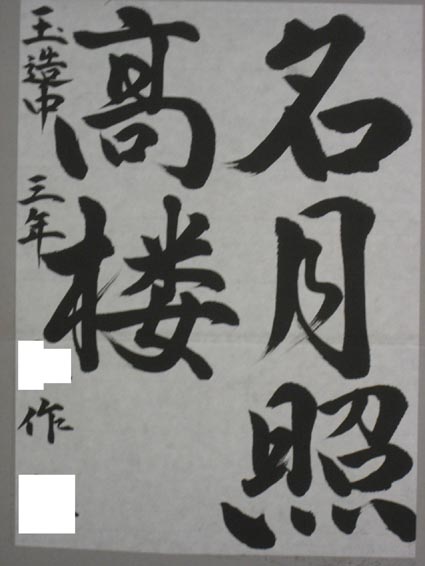 名月照
高楼
玉造中 三年 作